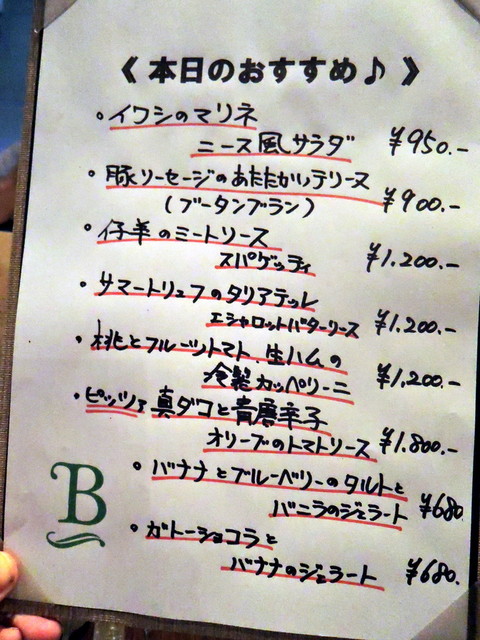 《 本日のおすすめ♪ 》
・イワシのマリネ
ニース風サラダ ¥950.-
・豚ソーセージのあたたかいテリーヌ
(ブータンブラン) ¥900.-
・仔羊のミートソース
スパゲッティ ¥1.200.-
・サマートリュフのタリアテッレ
エシャロットバターソース ¥1.200.-
・桃とフルーツトマト、生ハムの
冷製カッペリーニ ¥1,200.-
・ピッツァ 真ダコと青唐辛子
オリーブのトマトソース ¥1.800.-
・バナナとブルーベリーのタルトと
バニラのジェラート ¥680.
・ガトーショコラと
バナナのジェラート ¥680.
B